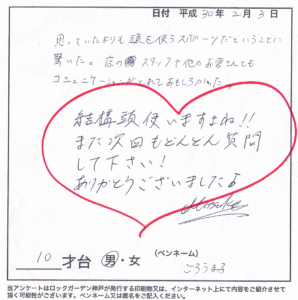 日付 平成 30年 2月 3日
思っていたよりも頭を使うスポーツだということに
驚いた。店のスタッフや他のお客さんとも
コミュニケーションがとれておもしろかった。
結構頭使いますよね!!
また次回もどんどん質問
して下さい!
ありがとうございました♪
10 才台 男・女 (ペンネーム)
ごろうまる
当アンケートはロックガーデン神戸が発行する印刷物又は、インターネット上にて内容をご紹介させて
頂く可能性がございます。ペンネーム又は匿名をご記入ください。